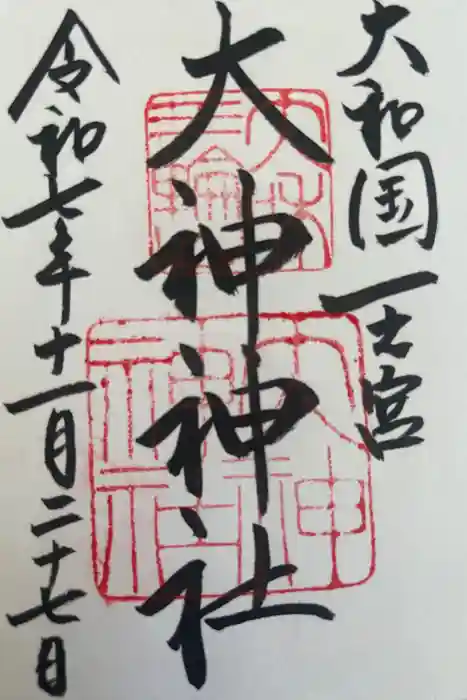 大和国一之宮
大神神社
令和七年十一月二十七日
三輪明神
大神神社